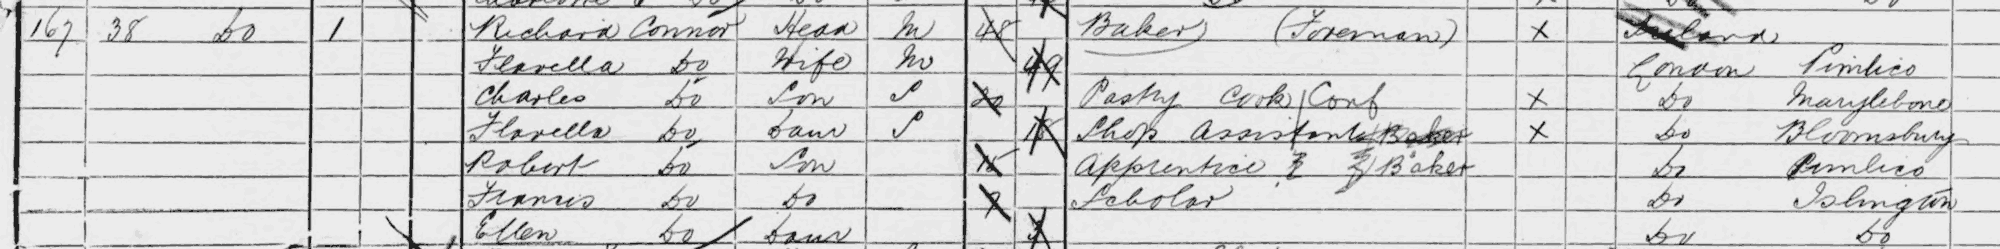 167 38 Do 1 Richard Connor Head M 48 Baker (Foreman) X Ireland
Flavella Do Wife M 49 London Pimlico
Charles Do Son S 20 Pastry Cook / Conf X Do Marylebone
Flavella Do Daur S 18 Shop Assistant Baker X Do Bloomsbury
Robert Do Son 15 Apprentice Baker Do Pimlico
Francis Do Do Scholar Do Islington
Ellen Do Daur Do Do